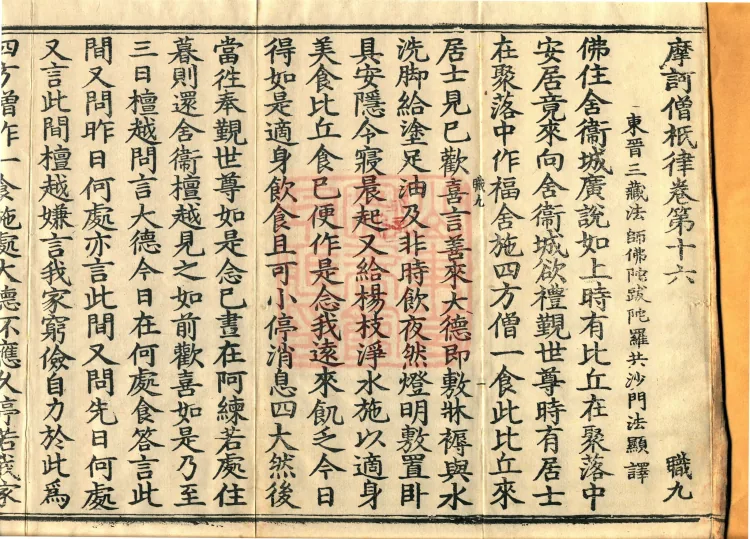 摩訶僧祇律卷第十六
職九
東晉三藏法師佛陀跋陀羅共沙門法顯譯
佛住舍衞城廣說如上時有比丘在聚落中
安居竟來向舍衞城欲禮覲世尊時有居士
在聚落中作福舍施四方僧一食此比丘來
職九
一
居士見已歡喜言善來大德即敷牀褥與水
洗脚給塗足油及非時飲夜然燈明敷置卧
具安隱令寢晨起又給楊枝淨水施以適身
美食比丘食已便作是念我遠來飢乏今日
得如是適身飲食且可小停消息四大然後
當往奉覲世尊如是念已晝在阿練若處住
暮則還舍衞檀越見之如前歡喜如是乃至
三日檀越問言大德今日在何處食答言此
間又問昨日何處亦言此間又問先日何處
又言此間檀越嫌言我家窮儉自力於此爲
四方僧作一食施處大德不應久停若我家